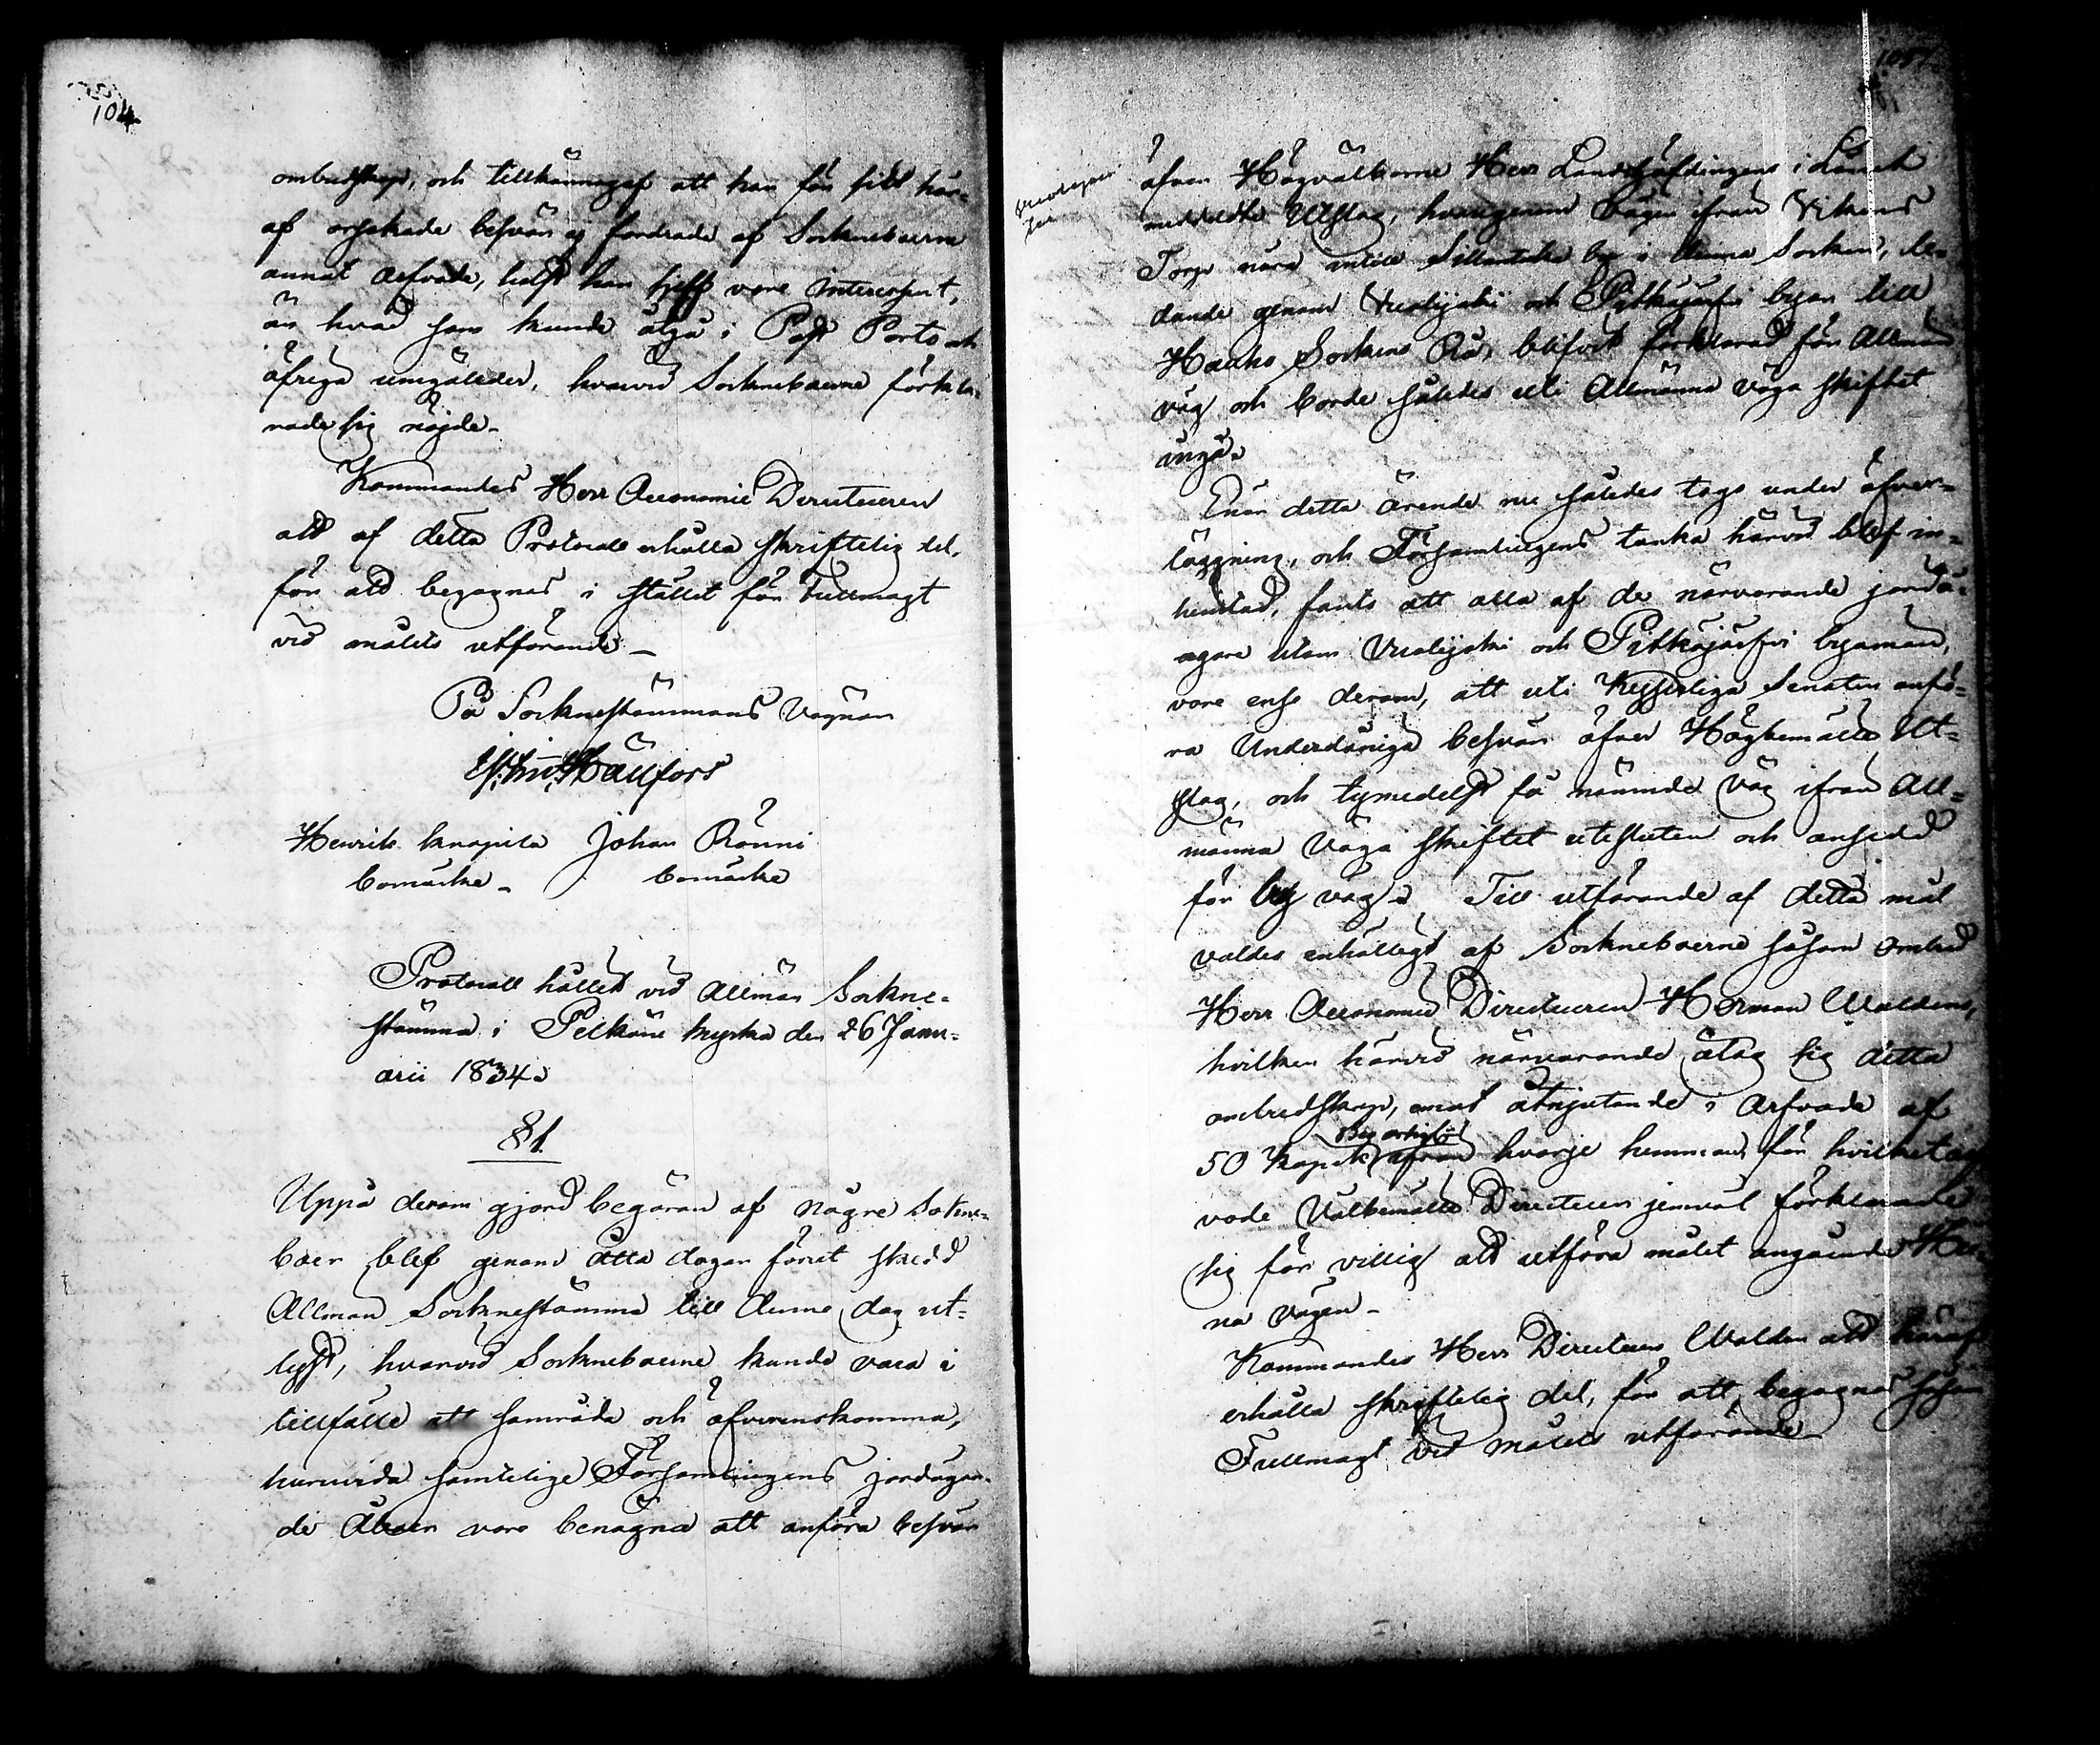 104
ombudskap, och tillkännagaf att han för sitt här-
af orsakade besvär ej fordrade af Socknebeerne
annat arfvode, helst han sjelf vore interessent,
än hvad som kunde åtgå i Post Porto och
öfriga umgälder, hvarvid Socknebeerne förkla-
rade sig nöjde.
Kommandes Herr Oeconomie Directeuren
att af detta Protocoll erhålla skriftelig del,
för att begagnas i stället för Fullmagt
vid målets utförande.
På Socknestämmans Vägnar
Hällfors
Henrik Knapila Johan Rönni
bomärke bomärke
Protocoll hållet vid Allmän Sockne-
stämma i Pelkäne kyrka den 26 Janu-
arii 1834.
§ 1.
Uppå derom gjord begäran af någre Sokne-
boer blef genom åtta dagar förut skedd
Allmän Socknestämma till denne dag ut-
lyst, hvarvid Socknebeerne kunde vara i
tillfälle att samråda och öfverenskomma,
huruvida samtelige Församlingens jordägan-
de Åboer vore benägne att anföra besvär
105
öfver Högvälborne Herr Landshöfdingens i Länet
meddelte Utslag, hvarigenom vägen ifrån Vikens
Torp nära intill by i denna Socken, le-
dande genom Vuolijoki och Pitkäjärfvi byar till
Hauho Sockens Rå, blifvit förklarad för Allmän
väg och borde således uti Allmänna väga skiftet
ingå.
Enär detta ärende nu således togs under öfver-
läggning, och Församlingens tanka härvid blef in-
hemtad, fants att alla af de närvarande jordä-
agare utom Vuolijoki och Pitkäjärfvi byamän,
vore ense derom, att uti Kejserliga Senaten anfö-
ra Underdåniga besvär öfver Högbemälte Ut-
slag, och tymedelst få nämnde väg ifrån All-
männa Väga skiftet utesluten och ansedd
för by väg. Till utförande af detta mål
valdes enhälligt af Socknebeerne såsom ombud
Herr Oeconomie Directeuren Herman Walden,
hvilken härvid närvarande åtog sig detta
ombudskap, emot åtnjutande i Arfvode af
50 Kopek ifrån hvarje hemman, för hvilket arf-
vode Välbemälte Directeur jemväl förklarade
sig för villig att utföra målet angående
na vägen.
Kommandes Herr Directeur Walden att häraf
erhålla skriftelig del, för att begagnas såsom
Fullmagt vid målets utförande.